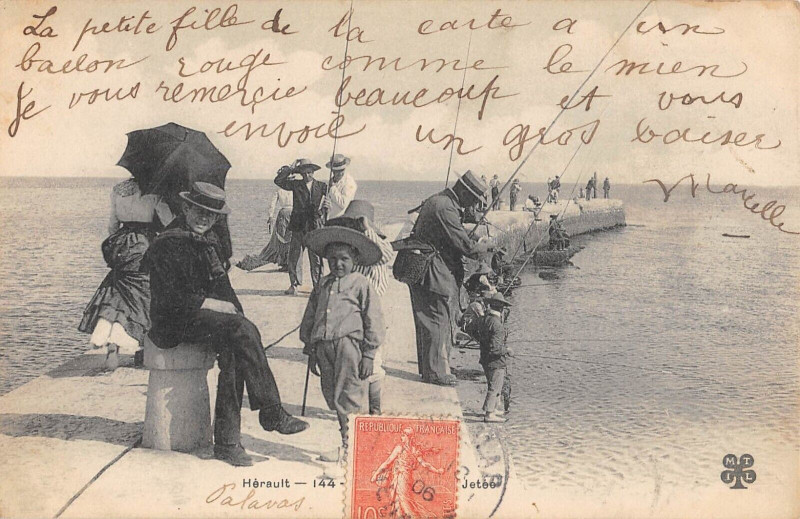 La petite fille de la carte a un
ballon rouge comme le mien
Je vous remercie beaucoup et vous
envoie un gros baiser
Marcelle
REPUBLIQUE FRANÇAISE
06
10
Hérault — 144 —
Jetée
Palavas
MTIL